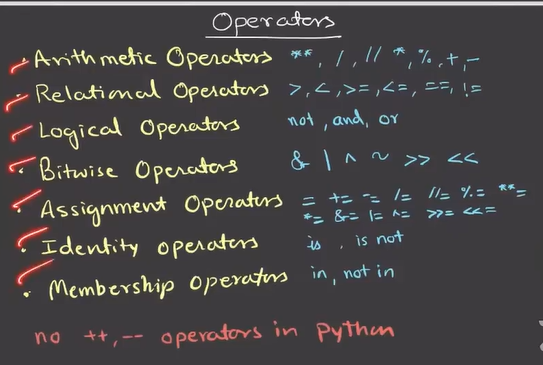 Operators
• Arithmetic Operators **, /, // *, %, +, -
• Relational Operators >, <, >=, <=, ==, !=
• Logical Operators not, and, or
• Bitwise Operators & | ^ ~ >> <<
• Assignment Operators = += -= /= //= %= **=
*= &= |= ^= >>= <<=
• Identity operators is, is not
• Membership Operators in, not in
no ++, -- operators in Python